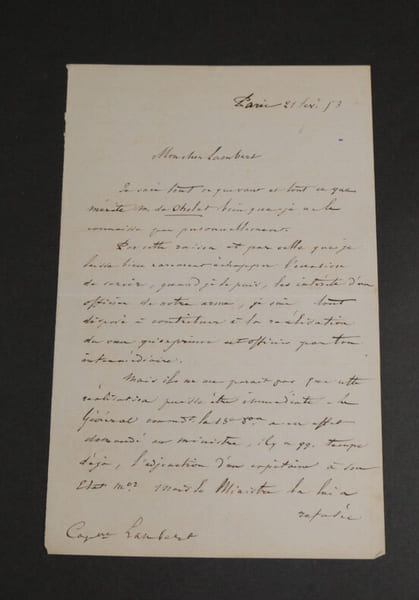 Paris 21 fév. 53
Mon cher Lambert
Je sais tout ce que vaut et tout ce que
mérite M. de Cholet bien que je ne le
connaisse pas personnellement.
Par cette raison et par celle que je
laisse bien rarement échapper l'occasion
de servir, quand je le puis, les intérêts d'un
officier de notre arme, je suis tout
disposé à contribuer à la réalisation
du vœu qu'exprime cet officier par ton
intermédiaire.
Mais il ne me parait pas que cette
réalisation puisse être immédiate - le
Général comm.t la 13e Don a en effet
demandé au ministre, il y a qq. temps
déjà, l'adjonction d'un capitaine à son
Etat Mor. Mais le Ministre la lui a
refusée
Lambert